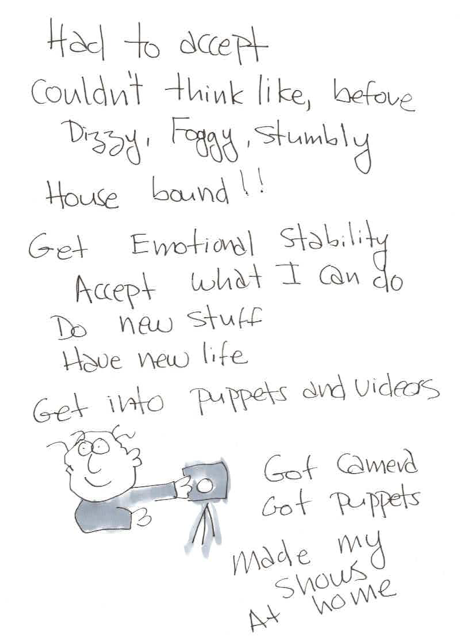 Had to accept
Couldn't think like, before
Dizzy, Foggy, Stumbly
House bound!!
Get Emotional Stability
Accept what I can do
Do new stuff
Have new life
Get into puppets and videos
Got camera
Got puppets
Made my
shows
At home